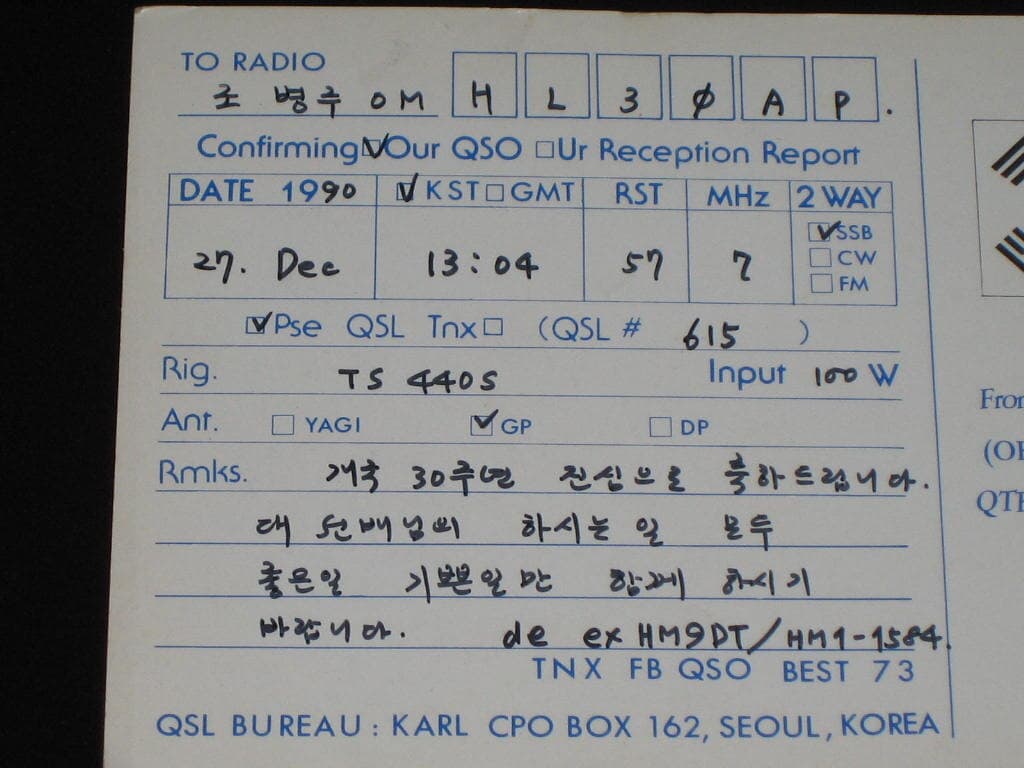 TO RADIO
조 병주 OM H L 3 Ø A P.
Confirming ☑Our QSO ☐Ur Reception Report
DATE 1990 ☑KST☐GMT RST MHz 2 WAY
27. Dec 13:04 57 7 ☑SSB
☐CW
☐FM
☑Pse QSL Tnx☐ (QSL # 615 )
Rig. TS 440S Input 100 W
Ant. ☐ YAGI ☑GP ☐ DP
Rmks. 개국 30주년 진심으로 축하드립니다.
대 선배님의 하시는 일 모두
좋은일 기쁜일만 함께 하시기
바랍니다. de ex HM9DT/HM1-1584.
TNX FB QSO BEST 73
QSL BUREAU: KARL CPO BOX 162, SEOUL, KOREA